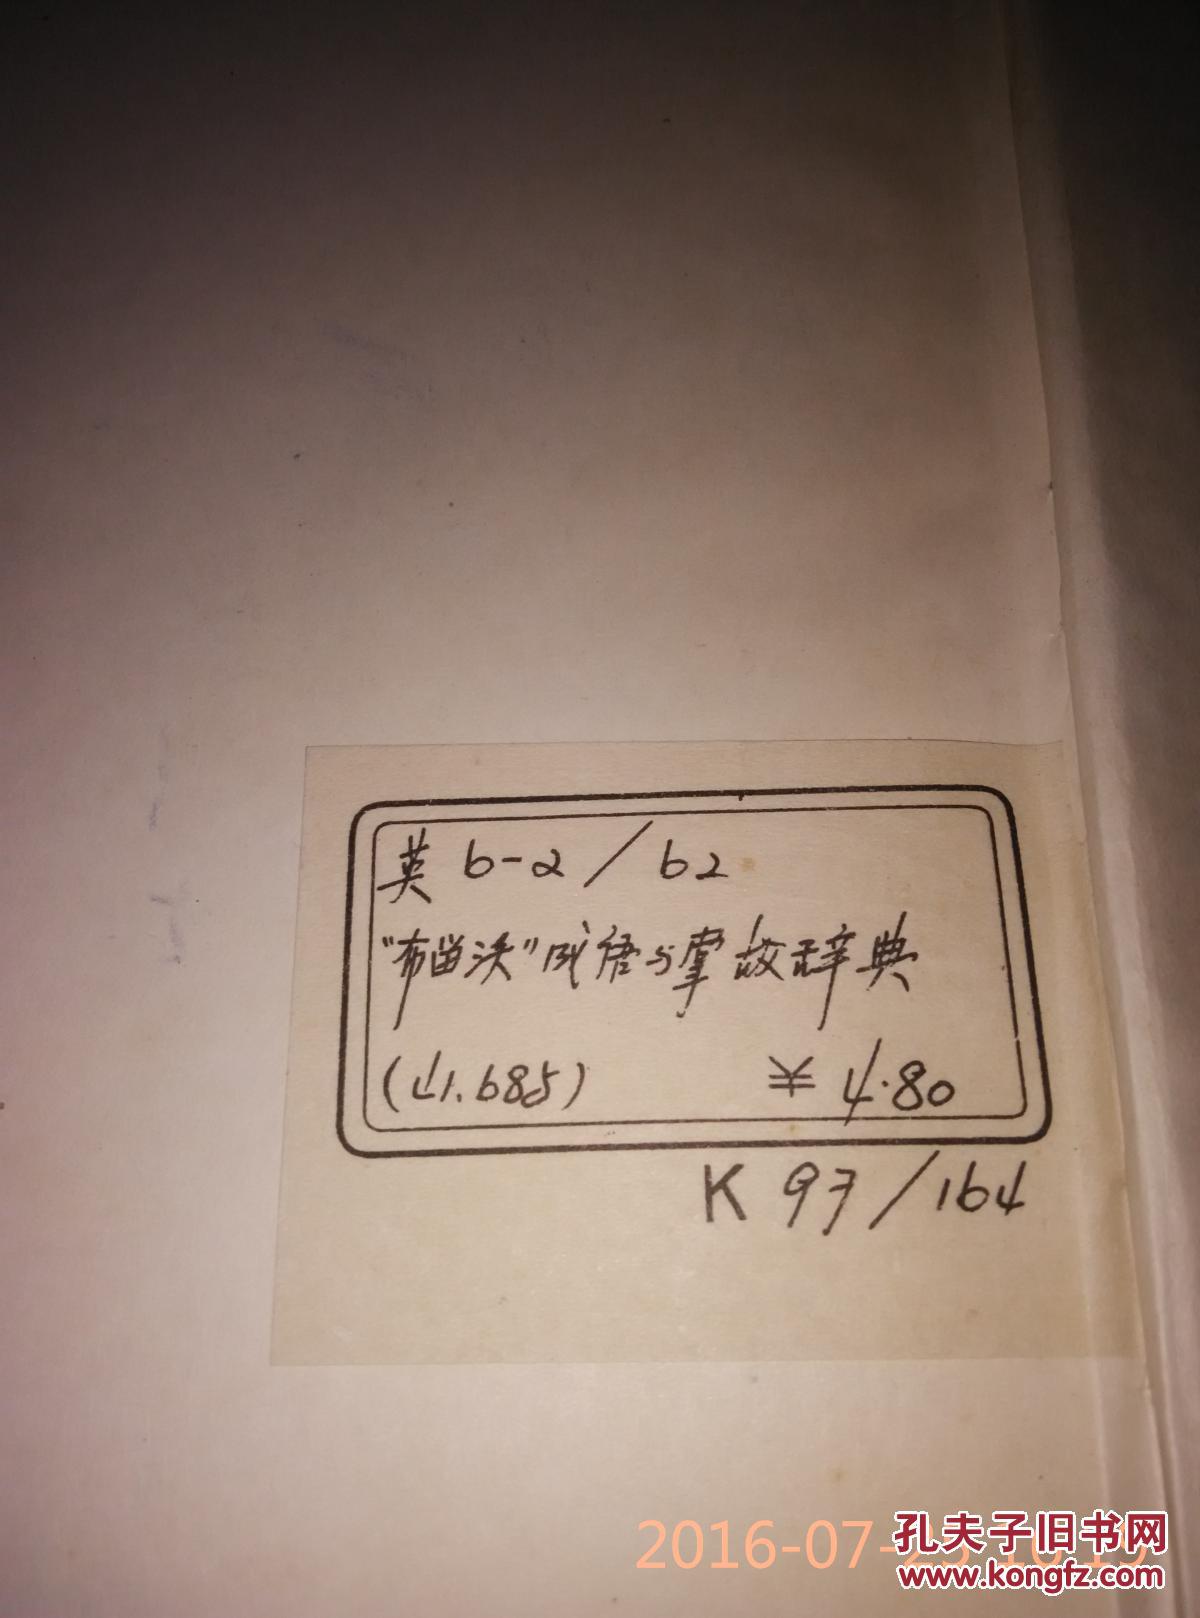 英 6-2 / 62
"布留沃"成语与掌故辞典
(41.685) ¥ 4.80
K 97/164
2016-07-2
孔夫子旧书网
www.kongfz.com